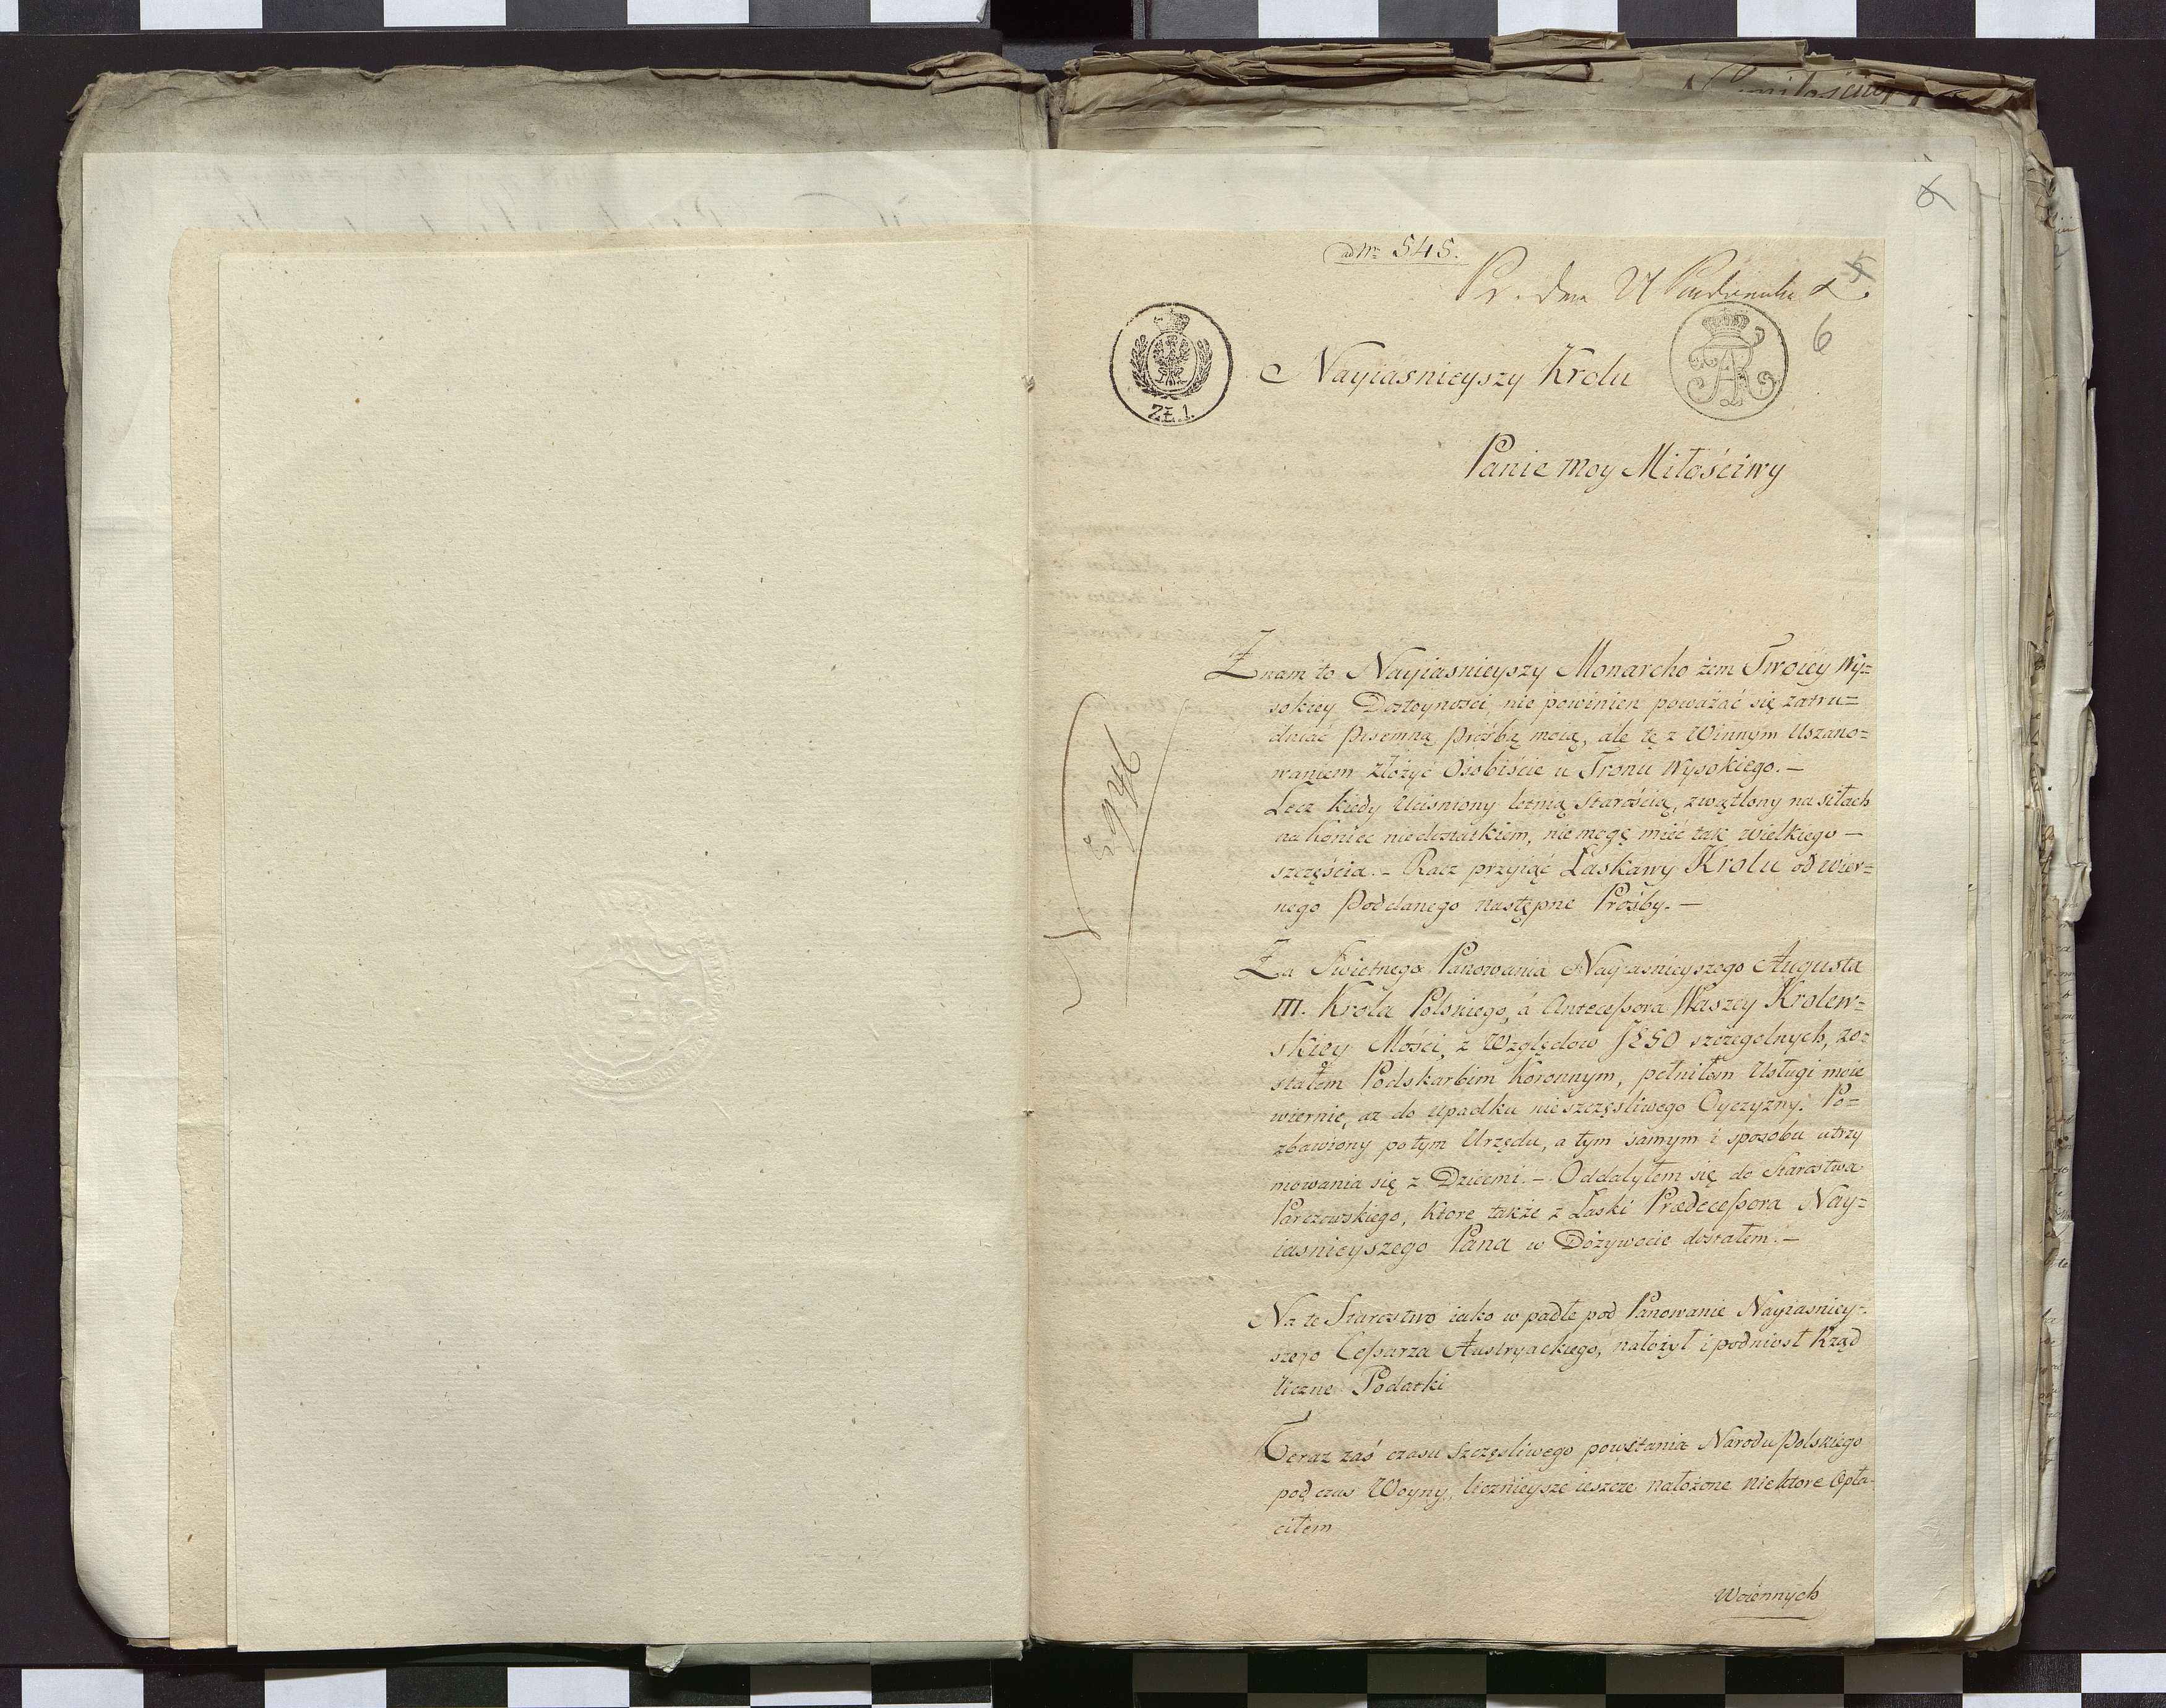 ad Nro 545.
Pr. dnia 27 Października
6
Nayiasnieyszy Krolu
ZŁ. 1.
Panie moy Miłościwy
Znam to Nayiasnieyszy Monarcho żem Twoiey Wy=
sokiey Dostoyności, nie powinien poważać się zatru=
dniać pisemną prośbą moią, ale tę z Winnym Uszano=
waniem złożyć Osobiście u Tronu Wysokiego. —
Lecz kiedy Uciśniony letnią Starością, zwątlony na siłach
na koniec niedostatkiem, nie mogę mieć tak wielkiego —
szczęścia. — Racz przyiąć Łaskawy Krolu od wier=
nego Poddanego następne Prośby. —
Za Świetnego Panowania Nayiasnieyszego Augusta
III. Krola Polskiego, á Antecessora Waszey Krolew=
skiey Mości, z Względow JEGO szczegolnych, zo=
stałem Podskarbim Koronnym, pełniłem Usługi moie
wiernie, az do upadku nieszczęsliwego Oyczyzny. Po=
zbawiony po tym Urzędu, a tym samym i sposobu utrzy
mowania się z Dziecmi. — Oddalyłem się do Starostwa
Parczewskiego, ktore także z Łaski Prædecessora Nay=
iasnieyszego Pana w Dożywocie dostałem. —
Na te Starostwo iako w padłe pod Panowanie Nayiasniey=
szego Cessarza Austryackiego, nałożył i podniosł Rząd
liczne Podatki
Teraz zaś czasu szczęsliwego powstania Narodu Polskiego
pod czas Woyny, licznieysze ieszcze nałożone niektore Opła=
ciłem
Woiennych